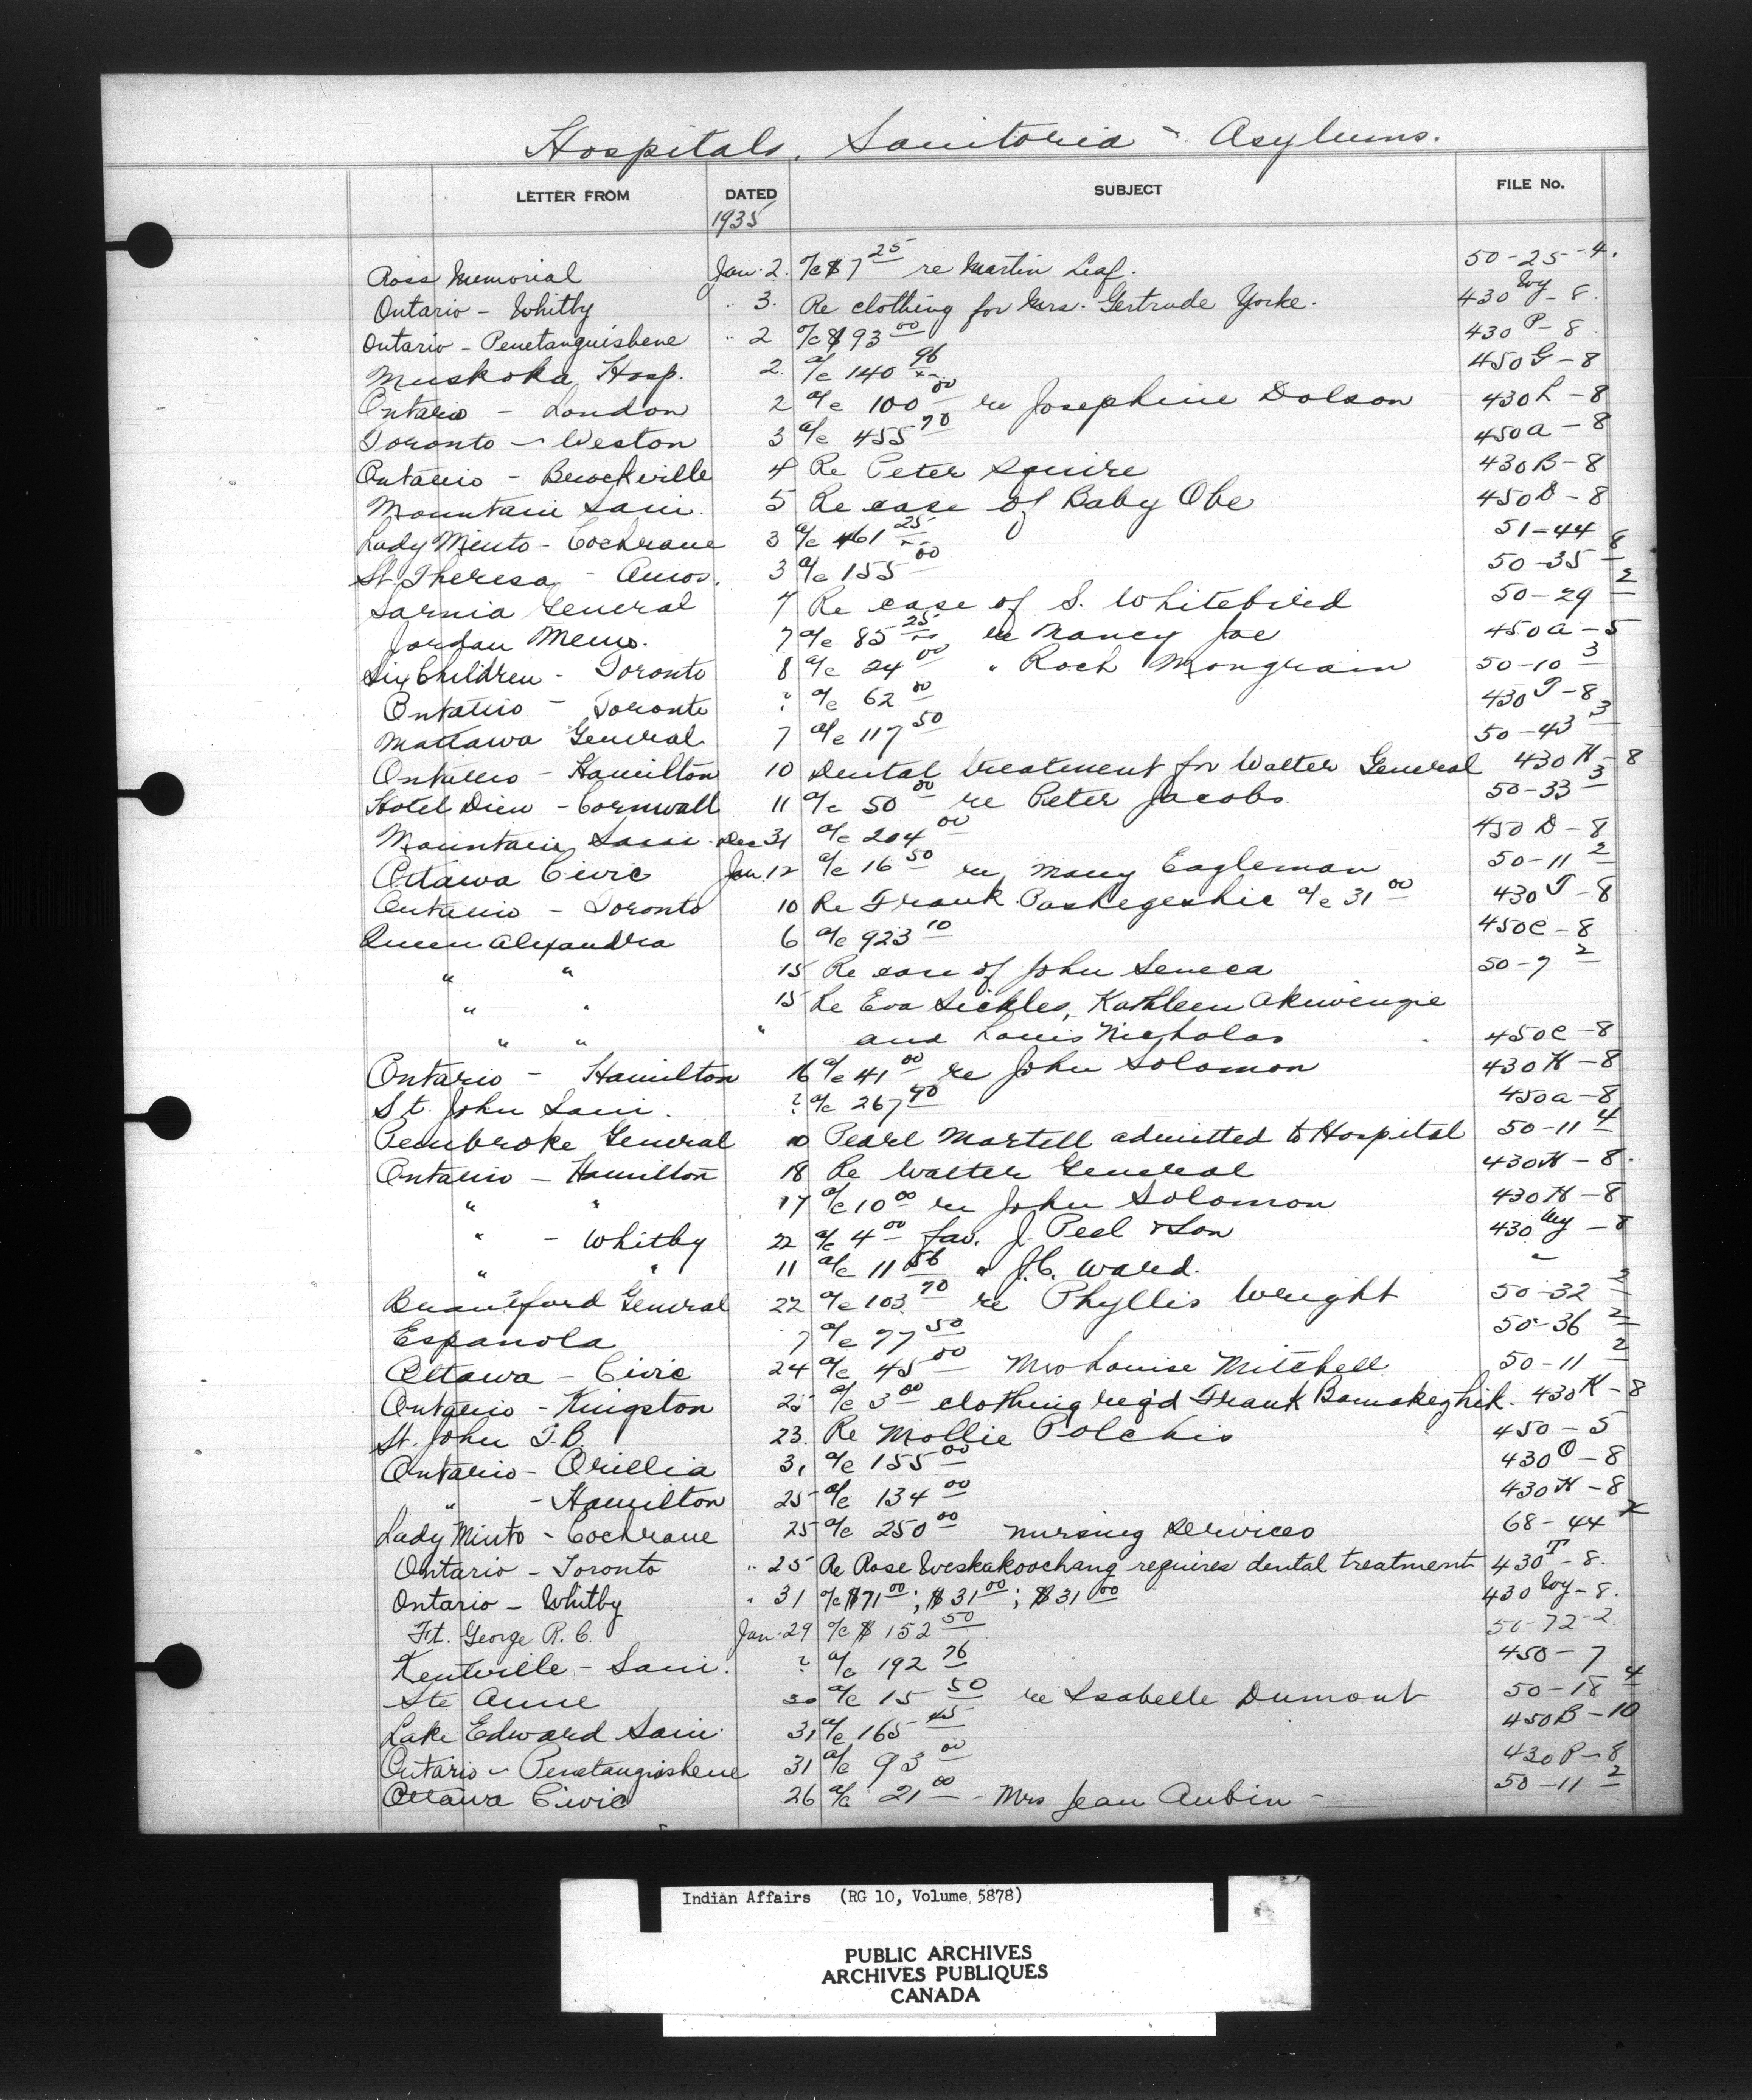 Hospitals, Sanitoria - Asylums.
LETTER FROM DATED SUBJECT FILE No.
1935
Ross Memorial Jan. 2. a/c $7 25 re Martin Leaf. 50-25-4.
Ontario - Whitby " 3. Re clothing for Mrs. Gertrude Yorke. 430 Wy - 8.
Ontario - Penetanguishene " 2 a/c $93 00 430 P - 8.
Muskoka Hosp. 2. a/c 140 96 450 G - 8
Ontario - London 2 a/c 100 00 re Josephine Dolson 430 L - 8
Toronto - Weston 3 a/c 455 70 450 a - 8
Ontario - Brockville 4 Re Peter Squire 430 B - 8
Mountain Sani. 5 Re case of Baby Obe 450 D - 8
Lady Minto - Cochrane 3 a/c 461 25 51-44
St. Theresa - Amos. 3 a/c 155 00 50-35 8
Sarnia General 7 Re case of S. Whitebird 50-29 2
Jordan Mem. 7 a/c 85 25 re Nancy Joe 450 a - 5
Sick Children - Toronto 8 a/c 24 00 " Roch Mongrain 50-10 3
Ontario - Toronto ? a/c 62 00 430 T - 8
Mattawa General 7 a/c 117 50 50-43 3
Ontario - Hamilton 10 Dental treatment for Walter General 430 H - 8
Hotel Dieu - Cornwall 11 a/c 50 00 re Peter Jacobs 50-33 3
Mountain Sani Dec 31 a/c 204 00 450 D - 8
Ottawa Civic Jan. 12 a/c 16 50 re Mary Eagleman 50-11 2
Ontario - Toronto 10 Re Frank Pashegeshic a/c 31 00 430 T - 8
Queen Alexandra 6 a/c 923 10 450 C - 8
" " 15 Re case of John Seneca 50-7 2
" " 15 Re Eva Sickles, Kathleen Akiwenzie
" " " and Louis Nicholas 450 C - 8
Ontario - Hamilton 16 a/c 41 00 re John Solomon 430 H - 8
St. John Sani. ? a/c 267 90 450 a - 8
Pembroke General 10 Pearl Martell admitted to Hospital 50-11 4
Ontario - Hamilton 18 Re Walter General 430 H - 8.
" " 17 a/c 10 00 re John Solomon 430 H - 8
" - Whitby 22 a/c 4 00 fav. J. Peel & Son 430 Wy - 8
" " 11 a/c 11 56 " J.C. Ward. "
Brantford General 22 a/c 103 70 re Phyllis Wright 50-32 2
Espanola 7 a/c 77 50 50-36 2
Ottawa - Civic 24 a/c 45 00 Mrs Louise Mitchell 50-11 2
Ontario - Kingston 25 a/c 3 00 clothing req'd Frank Bamakezhik. 430 K - 8
St. John T.B. 23. Re Mollie Polchis 450 - 5
Ontario - Orillia 31 a/c 155 00 430 O - 8
" - Hamilton 25 a/c 134 00 430 H - 8
Lady Minto - Cochrane 25 a/c 250 00 nursing services 68-44 X
Ontario - Toronto " 25 Re Rose Weskakoochang requires dental treatment 430 T - 8.
Ontario - Whitby " 31 a/c $71 00; $31 00; $31 00 430 Wy - 8.
Ft. George R.C. Jan. 29 a/c $152 50 50-72-2
Kentville - Sani. ? a/c 192 76 450 - 7
Ste Anne 30 a/c 15 50 re Isabelle Dumont 50-18 4
Lake Edward Sani. 31 a/c 165 45 450 B - 10
Ontario - Penetanguishene 31 a/c 93 00 430 P - 8
Ottawa Civic 26 a/c 21 00 - Mrs Jean Aubin - 50-11 2
Indian Affairs (RG 10, Volume 5878)
PUBLIC ARCHIVES
ARCHIVES PUBLIQUES
CANADA